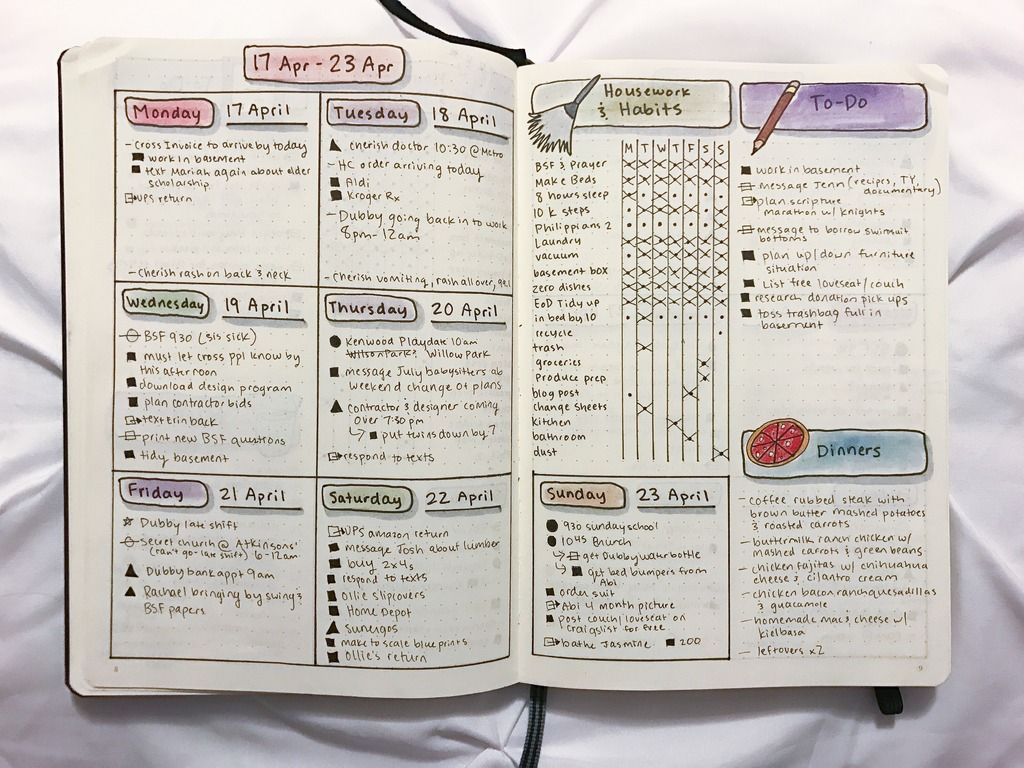 17 Apr - 23 Apr
Monday 17 April
- Cross Invoice to arrive by today
work in basement
text Mariah again about elder
scholarship
UPS return
- cherish rash on back & neck
Tuesday 18 April
cherish doctor 10:30 @ Metro
- HC order arriving today
Aldi
Kroger Rx
- Dubby going back in to work
8pm-12am
- cherish vomiting, rash all over,
Wednesday 19 April
BSF 930 (sis sick)
must let cross ppl know by
this afternoon
download design program
plan contractor bids
text Erin back
print new BSF questions
tidy basement
Thursday 20 April
Kenwood Playdate 10am
Wilson Park? Willow Park
message July babysitters ab
weekend change of plans
contractor & designer coming
over 7:30 pm
put twins down by 7
respond to texts
Friday 21 April
Dubby late shift
Secret church @ Atkinsons'
(can't go - late shift) 6-12am
Dubby bank appt 9am
Rachael bringing by swing &
BSF papers
Saturday 22 April
UPS amazon return
message Josh about lumber
buy 2x4s
respond to texts
Ollie slipcovers
Home Depot
make to scale blueprints
Ollie's return
Housework
& Habits
M T W T F S S
BSF & Prayer
Make Beds
8 hours sleep
10 k steps
Philippians 2
Laundry
vacuum
basement box
zero dishes
EoD Tidy up
in bed by 10
recycle
trash
groceries
Produce prep
blog post
change sheets
kitchen
bathroom
dust
Sunday 23 April
930 sunday school
1045 Church
get Dubby water bottle
get bed bumpers from
Abi
order suit
Abi 4 month picture
post couch/loveseat on
craigslist for free
bathe Jasmine 200
To-Do
work in basement
message Jenn (recipes, TY,
documentary)
plan scripture
marathon w/ knights
message to borrow swimsuit
bottoms
plan up/down furniture
situation
List free loveseat/couch
research donation pick ups
toss trashbag full in
basement
Dinners
- coffee rubbed steak with
brown butter mashed potatoes
& roasted carrots
- buttermilk ranch chicken w/
mashed carrots & green beans
- chicken fajitas w/ chihuahua
cheese & cilantro cream
- chicken bacon ranch quesadillas
& guacamole
- homemade mac & cheese w/
kielbasa
- leftovers x2
8
9